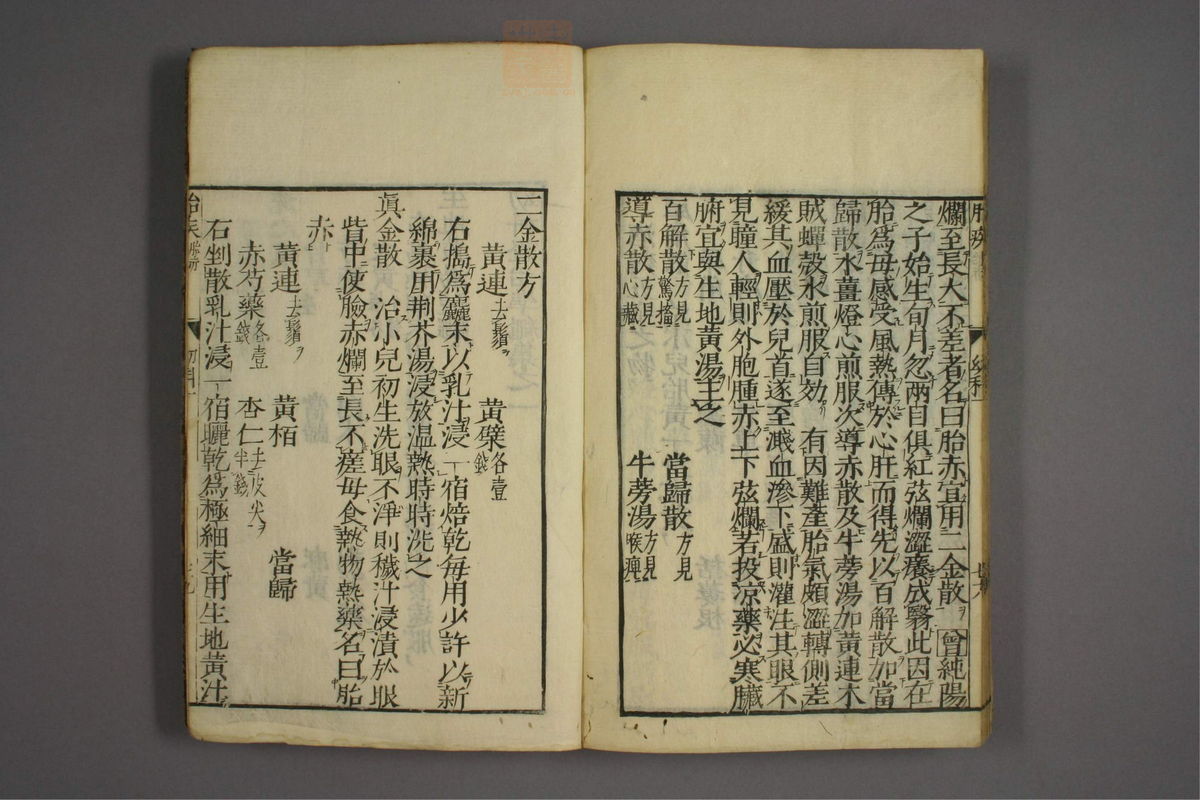 爛至長大不差者名曰胎赤宜用二金散ヲ 曾純陽
之子始生旬月忽兩目俱紅弦爛澀癢成翳此因在
胎爲母感受風熱傳於心肝而得先以百解散加當
歸散水薑燈心煎服次導赤散及牛蒡湯加黃連木
賊蟬殼水煎服自効 有因難產胎氣頗澀轉側差
緩其血壓於兒首遂至濺血滲下盛則灌注其眼不
見瞳人輕則外胞腫赤上下弦爛若投涼藥必寒臟
腑宜與生地黃湯主之
百解散方見驚搐 當歸散方見
導赤散方見心臟 牛蒡湯方見喉痺
二金散方
黃連去鬚 黃蘗各壹錢
右擣爲麤末以乳汁浸一宿焙乾每用少許以新
綿裹用荆芥湯浸放温熱時時洗之
眞金散 治小兒初生洗眼不淨則穢汁浸漬於眼
眥中使臉赤爛至長不瘥母食熱物熱藥名曰胎
赤
黃連去鬚 黃栢 當歸
赤芍藥各壹錢 杏仁去皮尖半錢
右剉散乳汁浸一宿曬乾爲極細末用生地黃汁